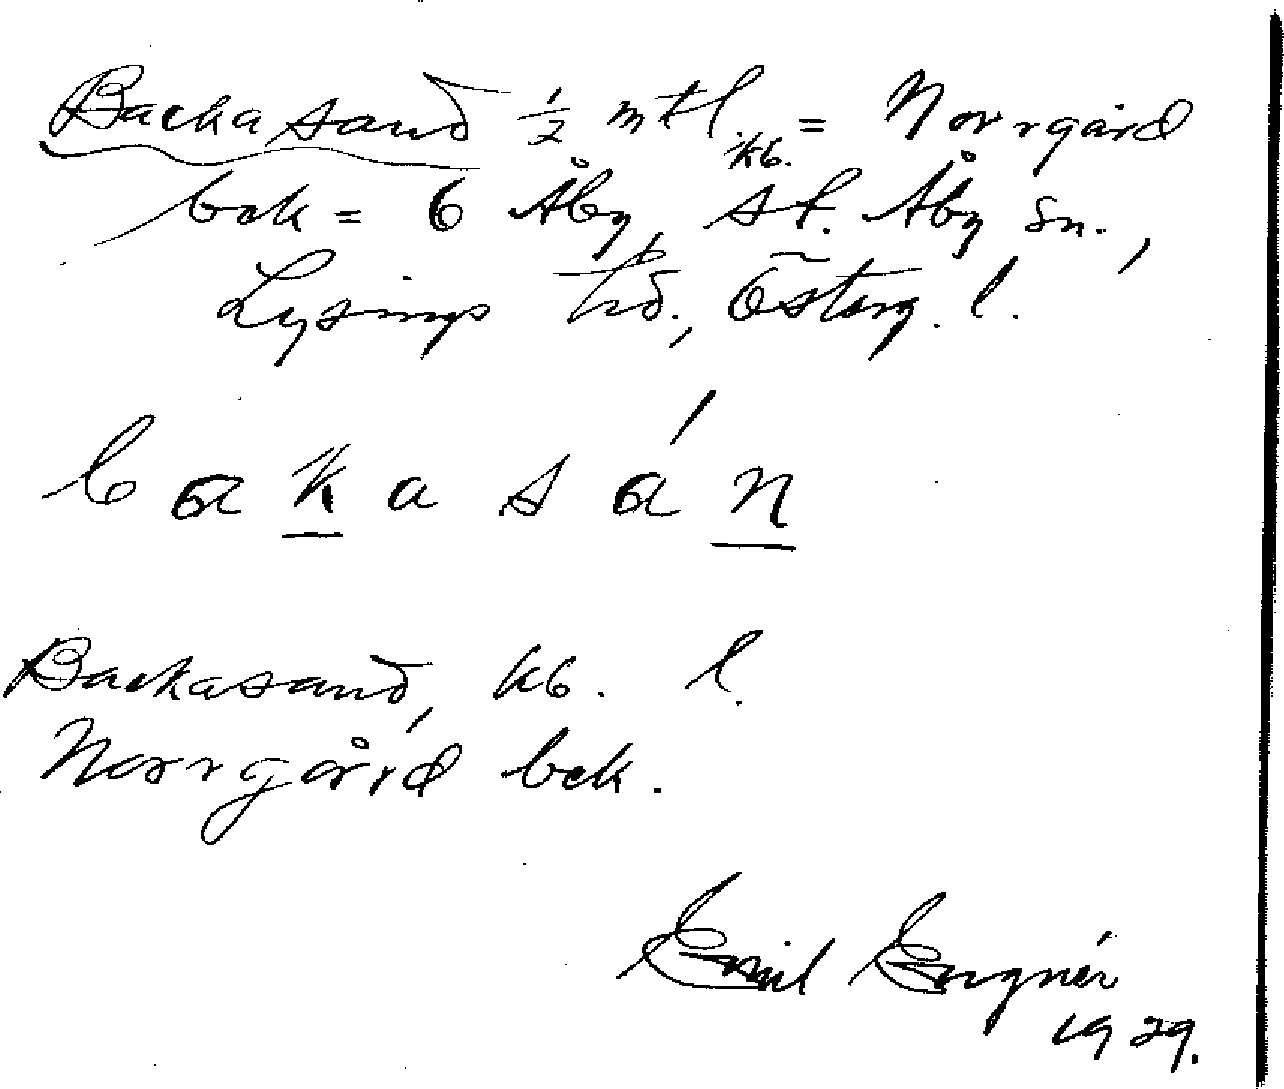 Backasand ½ mtl kb. = Norrgård
bek = 6 Åby, st. Åby sn.,
Lysings hd., Österg. l.
b a k a s á n
Backasand, kb. l.
Norrgård bek.
Emil Engnér
1929.